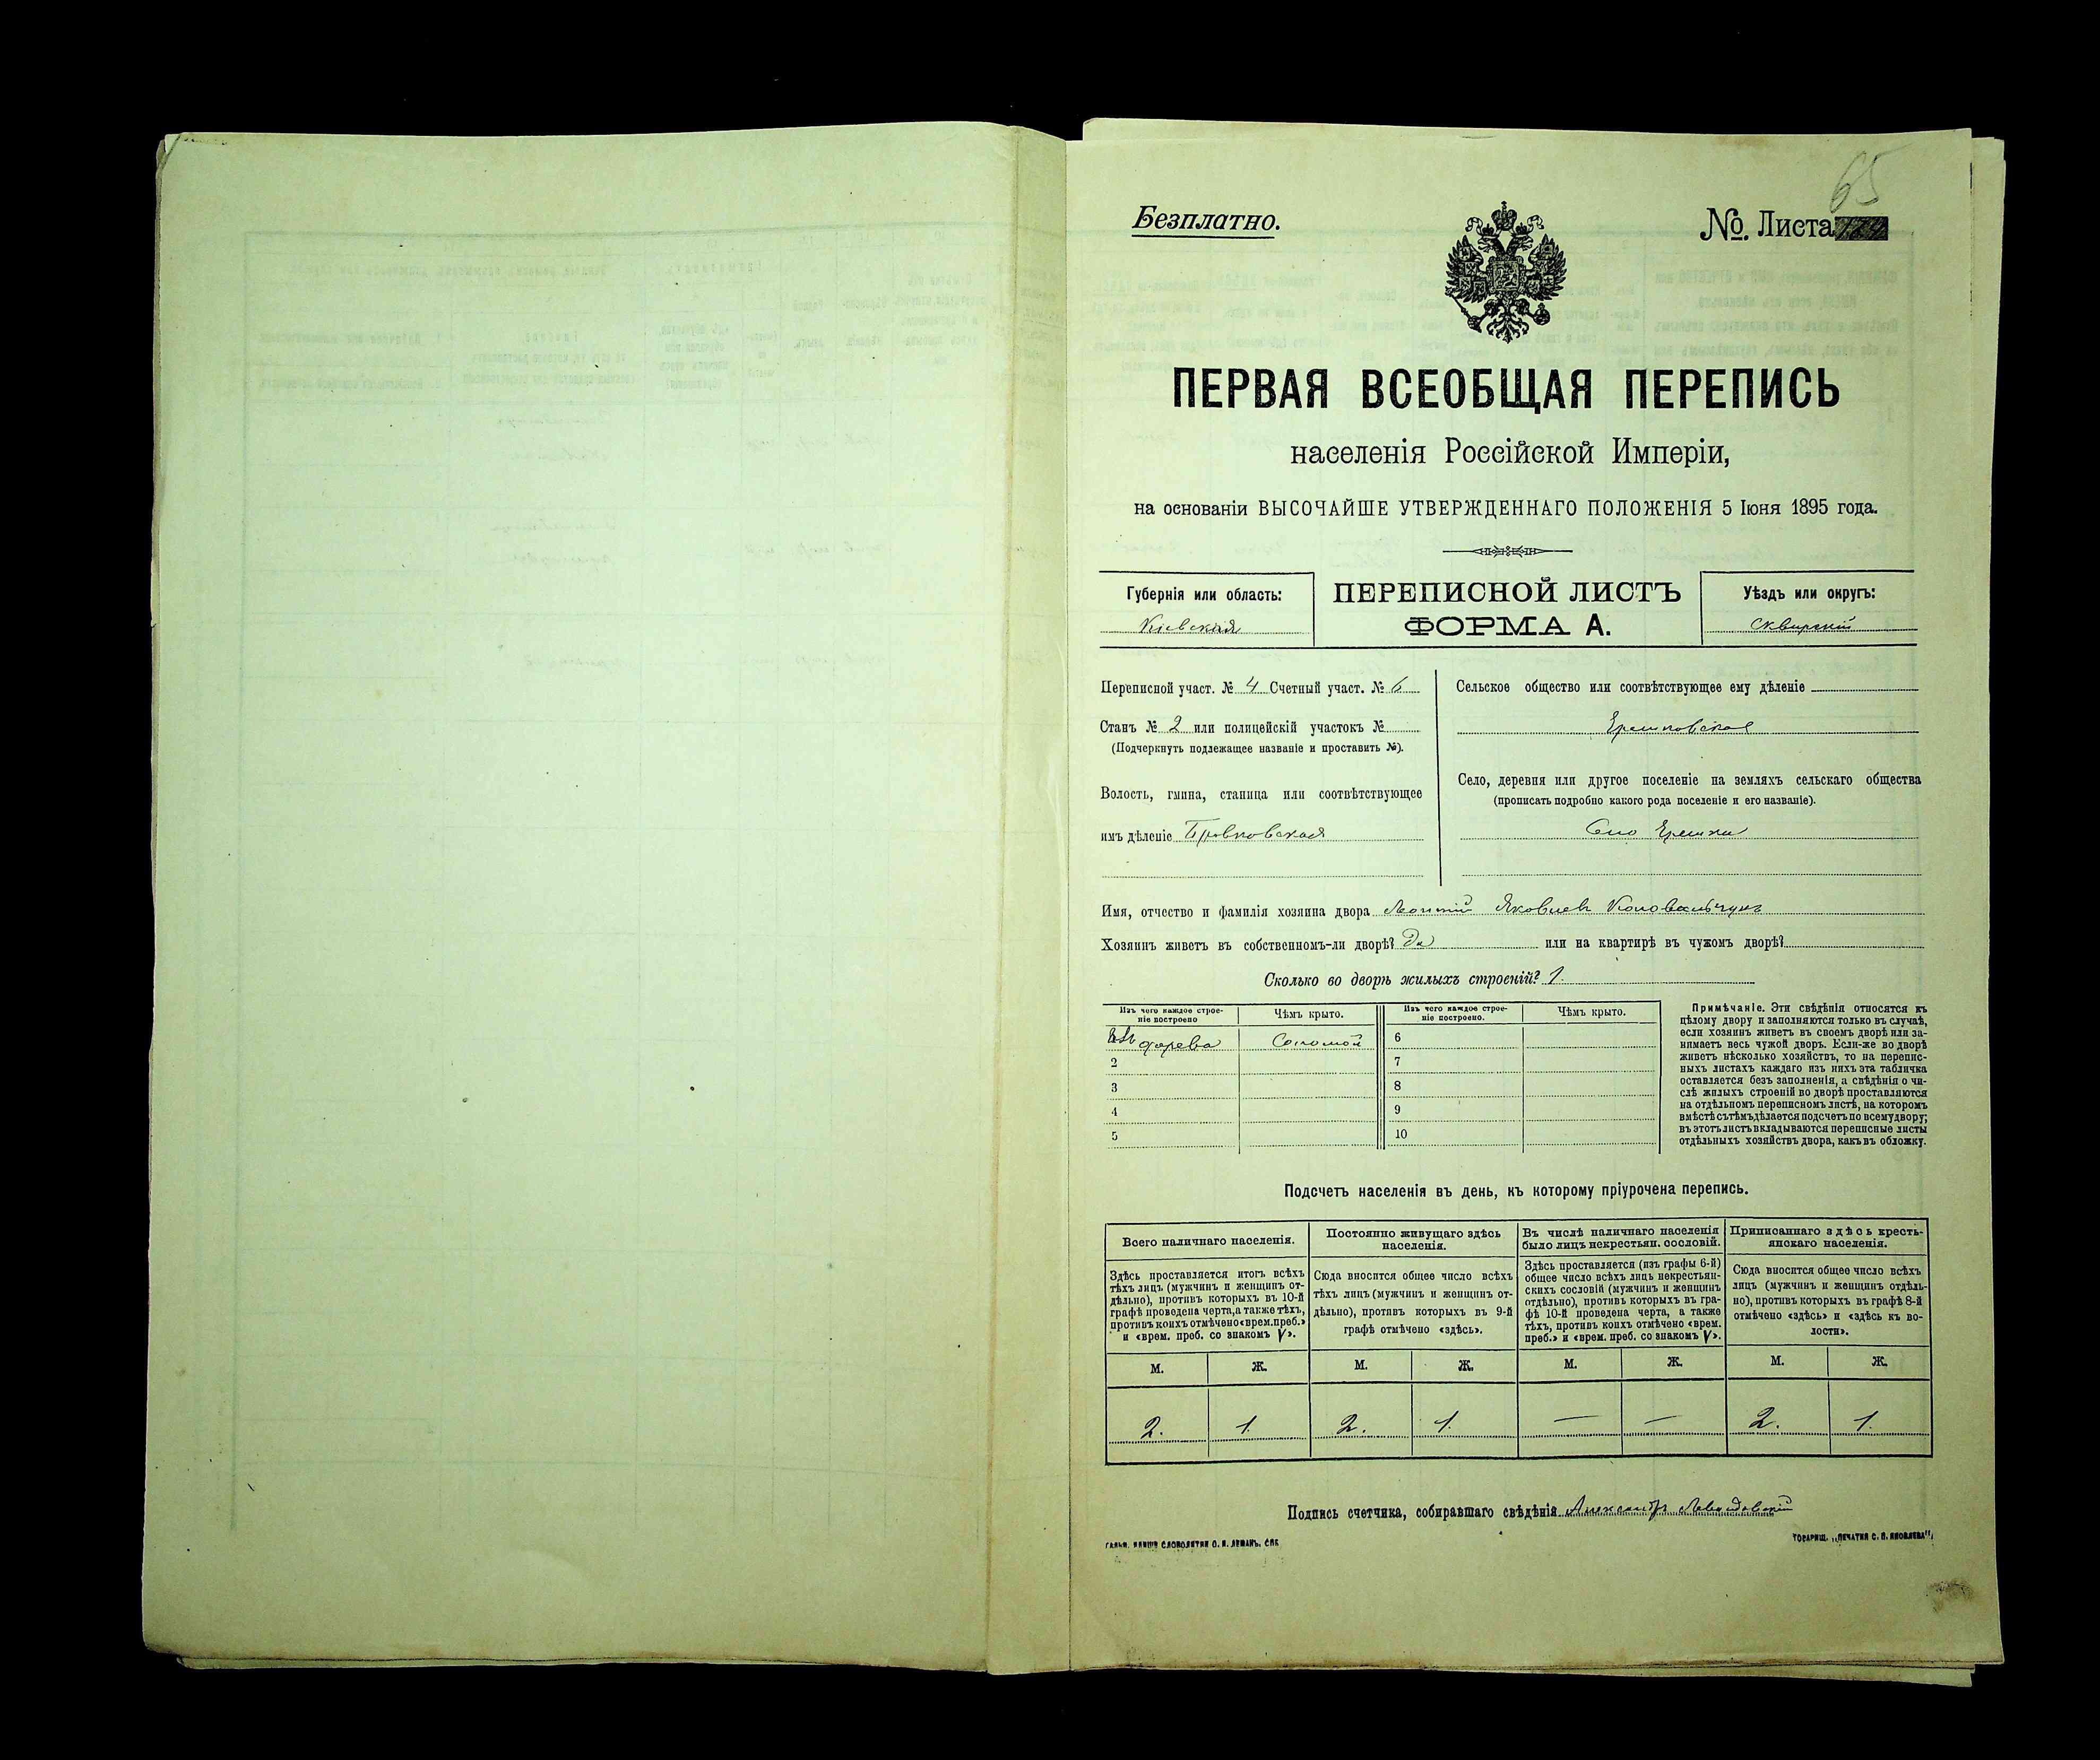 65
Безплатно.
№. Листа
ПЕРВАЯ ВСЕОБЩАЯ ПЕРЕПИСЬ
населенія Россійской Имперіи,
на основаніи ВЫСОЧАЙШЕ УТВЕРЖДЕННАГО ПОЛОЖЕНІЯ 5 Іюня 1895 года.
Губернія или область:
Кіевская
ПЕРЕПИСНОЙ ЛИСТЪ
ФОРМА А.
Уѣздъ или округъ:
Сквирскій
Переписной участ. № 4 Счетный участ. № 6
Станъ № 2 или полицейскій участокъ №
(Подчеркнуть подлежащее названіе и проставить №).
Волость, гмина, станица или соотвѣтствующее
имъ дѣленіе Бровковская
Сельское общество или соотвѣтствующее ему дѣленіе
Ерешковское
Село, деревня или другое поселеніе на земляхъ сельскаго общества
(прописать подробно какого рода поселеніе и его названіе).
Село Ерешки
Имя, отчество и фамилія хозяина двора Леонтій Яковлевъ Коновальчукъ
Хозяинъ живетъ въ собственномъ-ли дворѣ? Да или на квартирѣ въ чужомъ дворѣ?
Сколько во дворѣ жилыхъ строеній? 1.
Изъ чего каждое строе-
ніе построено
Чѣмъ крыто.
Изъ чего каждое строе-
ніе построено.
Чѣмъ крыто.
дерева Соломой 6
2 7
3 8
4 9
5 10
Примѣчаніе. Эти свѣдѣнія относятся къ
цѣлому двору и заполняются только въ случаѣ,
если хозяинъ живетъ въ своемъ дворѣ или за-
нимаетъ весь чужой дворъ. Если-же во дворѣ
живетъ нѣсколько хозяйствъ, то на перепис-
ныхъ листахъ каждаго изъ нихъ эта табличка
оставляется безъ заполненія, а свѣдѣнія о чи-
слѣ жилыхъ строеній во дворѣ проставляются
на отдѣльномъ переписномъ листѣ, на которомъ
вмѣстѣ съ тѣмъ дѣлается подсчетъ по всему двору;
въ этотъ листъ вкладываются переписные листы
отдѣльныхъ хозяйствъ двора, какъ въ обложку.
Подсчетъ населенія въ день, къ которому пріурочена перепись.
Всего наличнаго населенія.
Здѣсь проставляется итогъ всѣхъ
тѣхъ лицъ (мужчинъ и женщинъ от-
дѣльно), противъ которыхъ въ 10-й
графѣ проведена черта, а также тѣхъ,
противъ коихъ отмѣчено «врем. преб.»
и «врем. преб. со знакомъ V».
Постоянно живущаго здѣсь
населенія.
Сюда вносится общее число всѣхъ
тѣхъ лицъ (мужчинъ и женщинъ от-
дѣльно), противъ которыхъ въ 9-й
графѣ отмѣчено «здѣсь».
Въ числѣ наличнаго населенія
было лицъ некрестьян. сословій.
Здѣсь проставляется (изъ графы 6-й)
общее число всѣхъ лицъ некрестьян-
скихъ сословій (мужчинъ и женщинъ
отдѣльно), противъ которыхъ въ гра-
фѣ 10-й проведена черта, а также
тѣхъ, противъ коихъ отмѣчено «врем.
преб.» и «врем. преб. со знакомъ V».
Приписаннаго здѣсь кресть-
янскаго населенія.
Сюда вносится общее число всѣхъ
лицъ (мужчинъ и женщинъ отдѣль-
но), противъ которыхъ въ графѣ 8-й
отмѣчено «здѣсь» и «здѣсь къ во-
лости».
М. Ж. М. Ж. М. Ж. М. Ж.
2. 1. 2. 1. — — 2. 1.
Подпись счетчика, собиравшаго свѣдѣнія Александръ Левидовскій
ГАЛЬВ. КЛИШЕ СЛОВОЛИТНИ О. И. ЛЕМАНЪ. СПБ
ТОВАРИЩ. „ПЕЧАТНЯ С. П. ЯКОВЛЕВА"